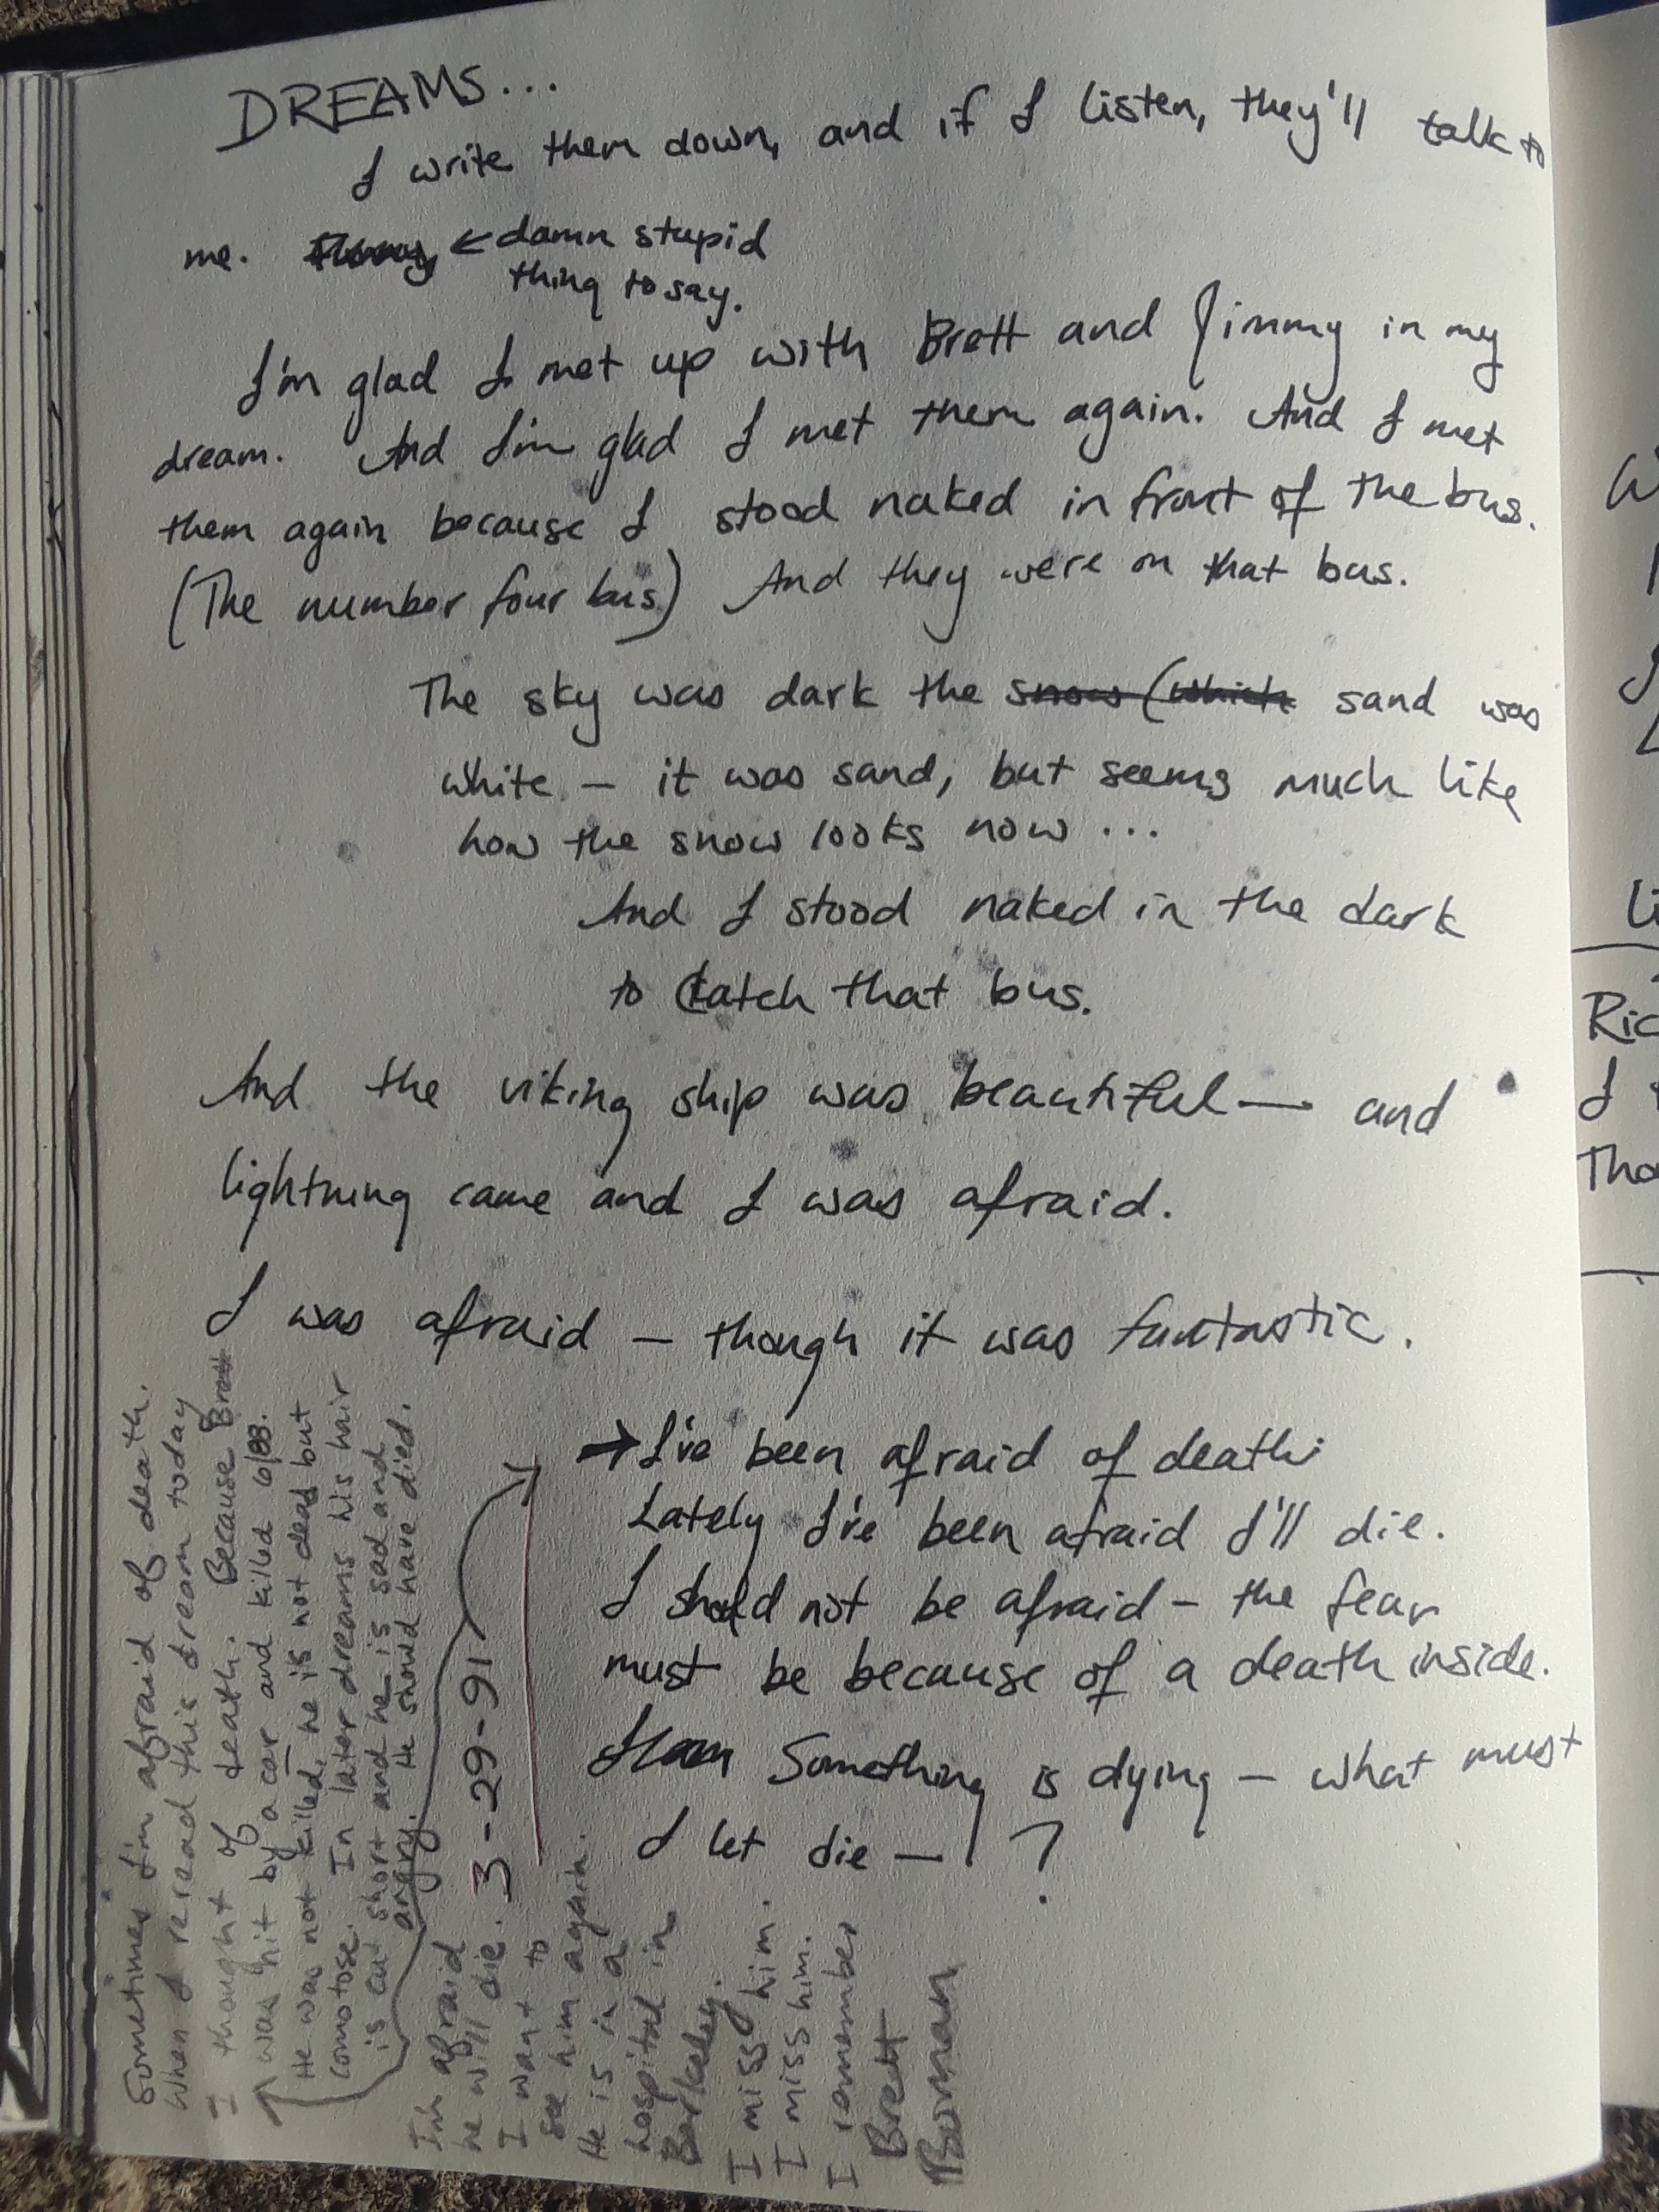 DREAMS...
I write them down, and if I listen, they'll talk to
me. ← damn stupid
thing to say.
I'm glad I met up with Brett and Jimmy in my
dream. And I'm glad I met them again. And I met
them again because I stood naked in front of the bus.
(The number four bus) And they were on that bus.
The sky was dark the snow (which sand was
white – it was sand, but seems much like
how the snow looks now ...
And I stood naked in the dark
to catch that bus.
And the viking ship was beautiful — and
lightning came and I was afraid.
I was afraid – though it was fantastic.
→ I've been afraid of death
Lately I've been afraid I'll die.
I should not be afraid – the fear
must be because of a death inside.
Something is dying – what must
I let die — ?
3-29-91
Sometimes I'm afraid of death.
When I reread this dream today
I thought of death. Because Brett
was hit by a car and killed 6/88.
He was not killed, he is not dead but
comatose. In later dreams his hair
is cut short and he is sad and
angry. He should have died.
I'm afraid
he will die.
I want to
see him again.
He is in a
hospital in
Berkeley.
I miss him.
I miss him.
I remember
Brett